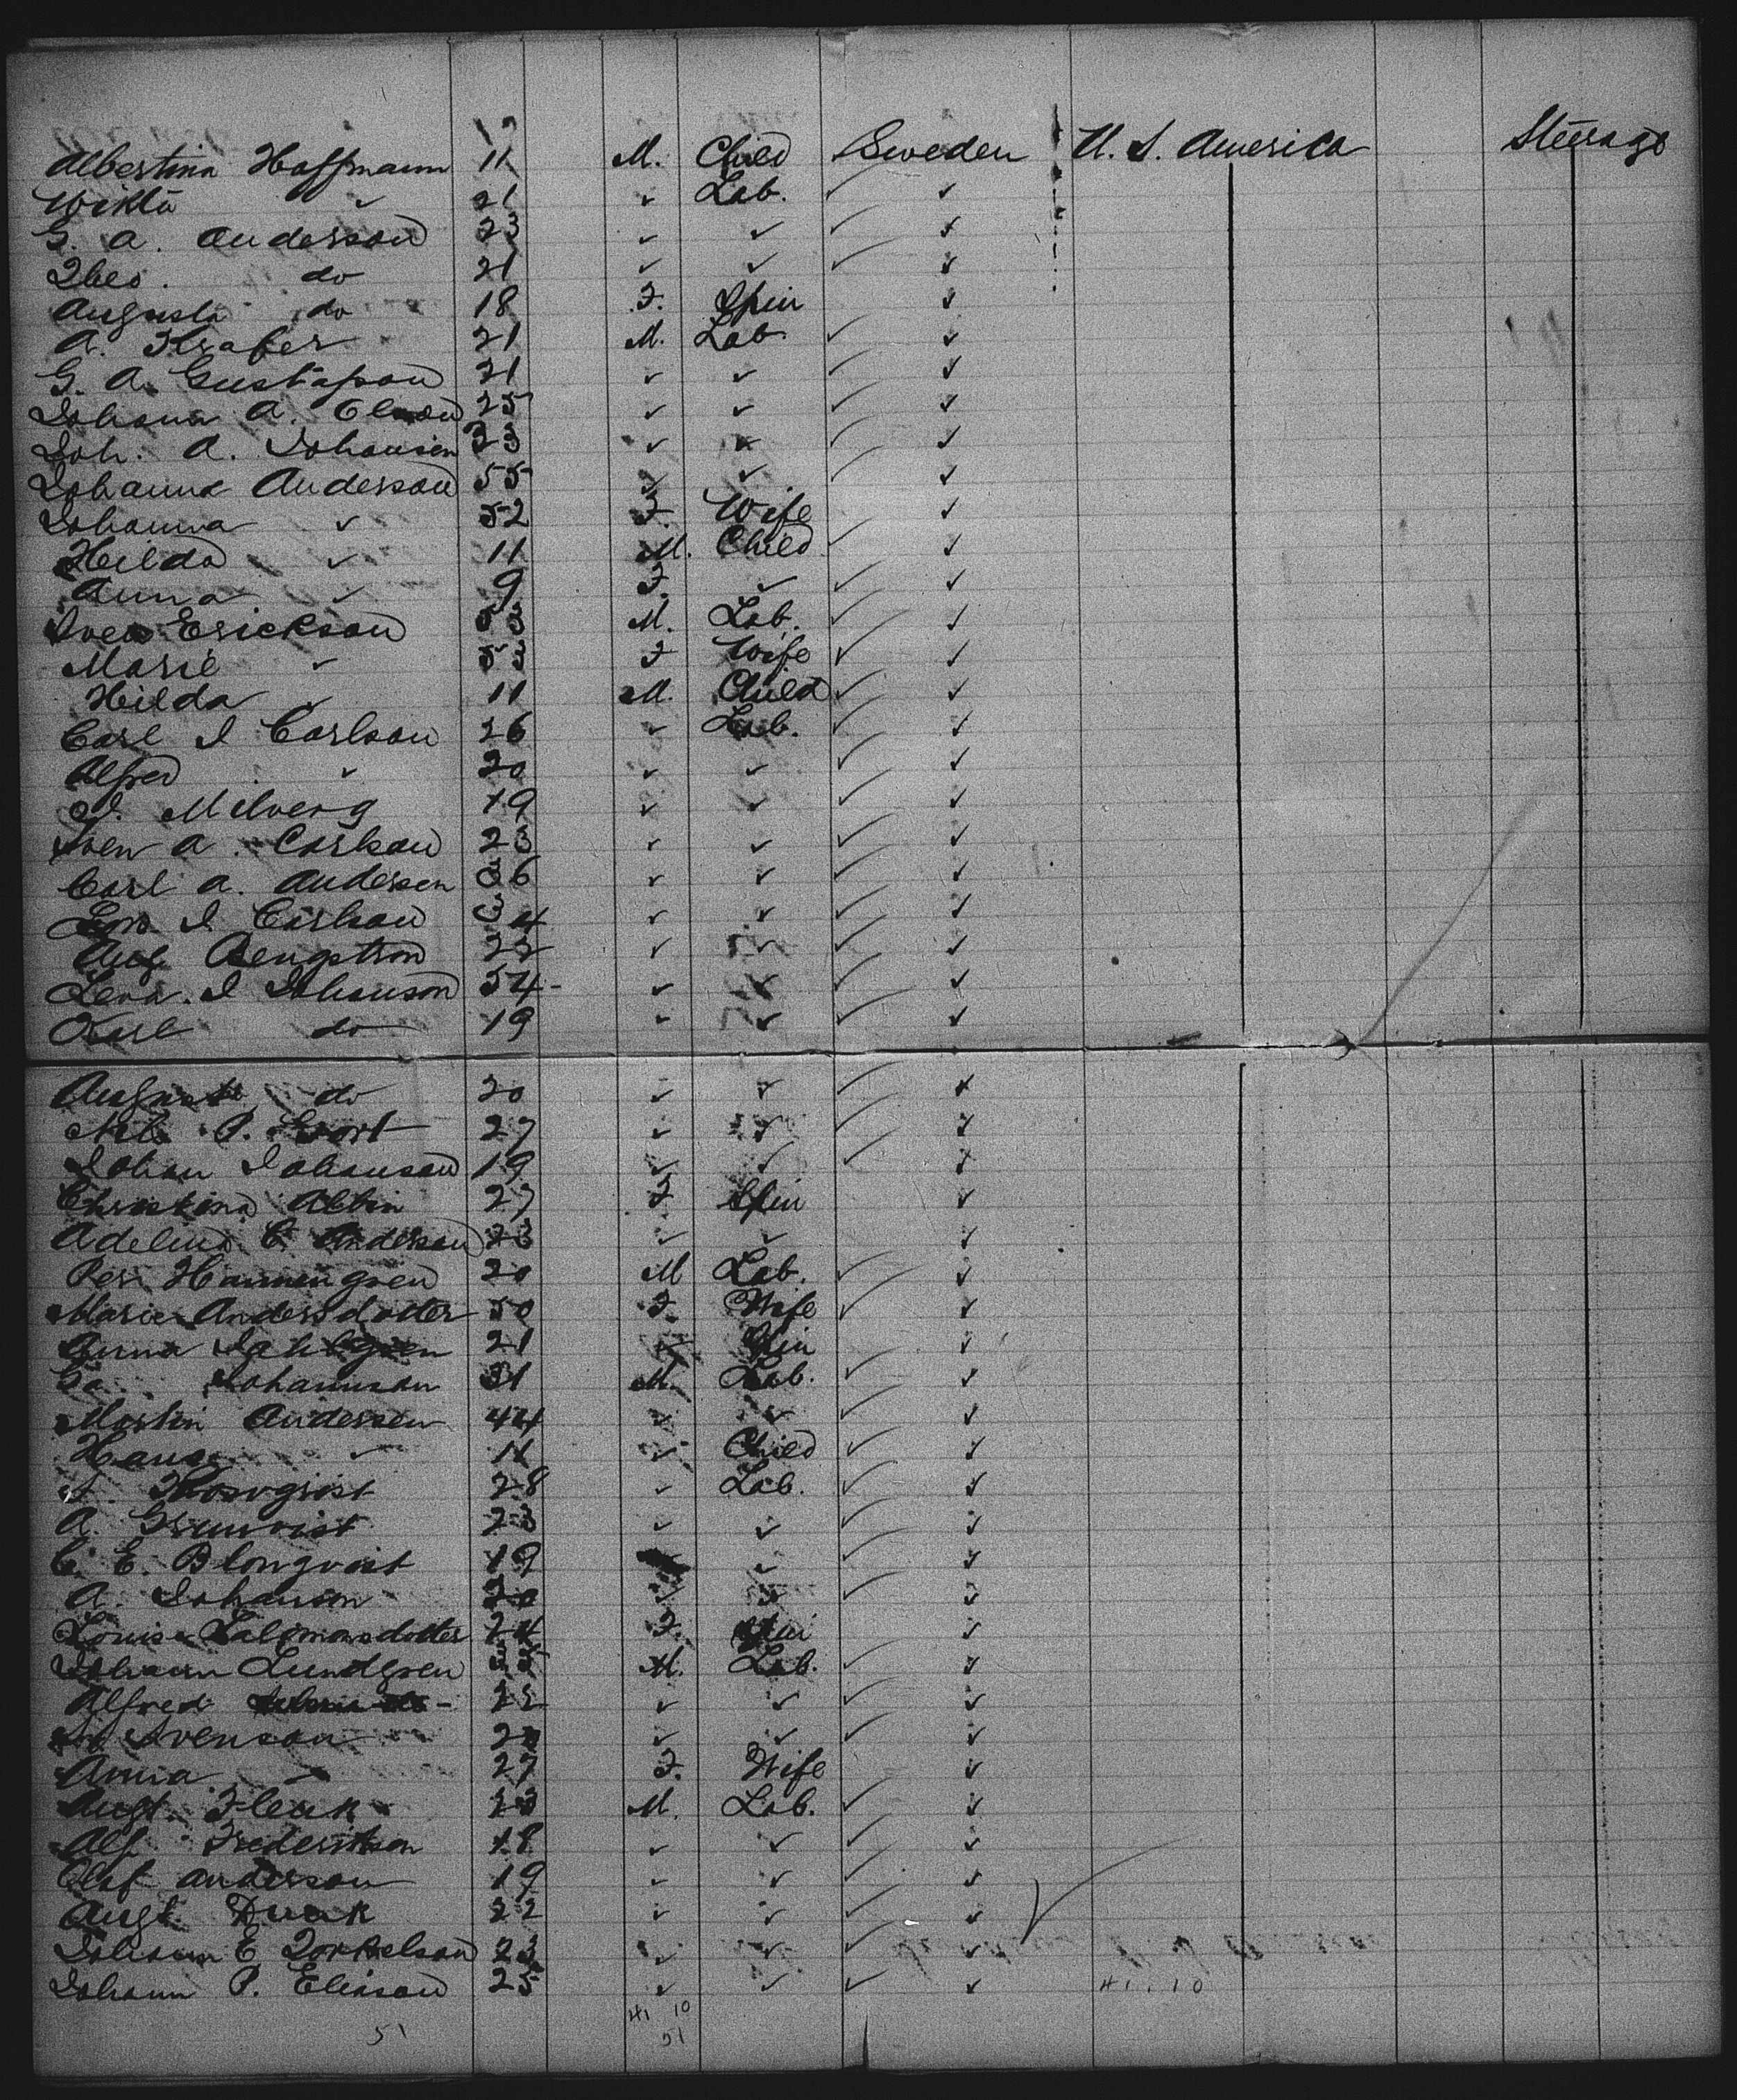 Albertina Hoffmann 11 M. Child Sweden U. S. America Steerage
Wikta ✓ 21 ✓ Lab. ✓ ✓
G. A. Andersson 23 ✓ ✓ ✓ ✓
Theo. do 21 ✓ ✓ ✓ ✓
Augusta do 18 F. Spin ✓
A. Kraber 21 M. Lab ✓ ✓
G. A. Gustafson 21 ✓ ✓ ✓ ✓
Johann A. 25 ✓ ✓ ✓ ✓
Joh. A. Johansen 23 ✓ ✓ ✓ ✓
Johanna Andersson 55 ✓ ✓ ✓ ✓
Johanna ✓ 52 F. Wife ✓
Hilda ✓ 11 M. Child ✓ ✓
Anna ✓ 9 F. ✓ ✓ ✓
Sven Erickson 53 M. Lab. ✓ ✓
Marie ✓ 53 F Wife ✓ ✓
Hilda ✓ 11 M. Child ✓ ✓
Carl J Carlson 26 ✓ Lab. ✓ ✓
Alfred ✓ 20 ✓ ✓ ✓ ✓
J. Milverg 19 ✓ ✓ ✓ ✓
Sven A. Carlson 23 ✓ ✓ ✓ ✓
Carl A. Andersen 36 ✓ ✓ ✓ ✓
J Carlson 34 ✓ ✓ ✓ ✓
Aug Bengstrom 22 ✓ ✓ ✓ ✓
Lena. J Johanson 54 ✓ ✓ ✓ ✓
Karl do 19 ✓ ✓ ✓ ✓
August do 20 ✓ ✓ ✓ ✓
Nels P. 27 ✓ ✓ ✓ ✓
Johan Johanson 19 ✓ ✓ ✓ ✓
Christina Albin 27 F Spin ✓
Adelina C. Anderson 23 ✓ ✓ ✓
Per Hanningsen 20 M Lab. ✓ ✓
Marie Andersdotter 50 F. Wife ✓ ✓
Anna 21 ✓ Spin ✓
Johannson 31 M. Lab. ✓ ✓
Martin Andersen 44 ✓ ✓ ✓ ✓
Hans ✓ 11 ✓ Child ✓ ✓
28 ✓ Lab. ✓ ✓
A. Grunvist 23 ✓ ✓ ✓ ✓
C. E. Blonqvist 19 ✓ ✓ ✓
A. Johanson 20 ✓ ✓ ✓ ✓
Louise Salomonsdotter 24 F. Spin ✓
Johann Lundgren 35 M. Lab. ✓ ✓
Alfred do 22 ✓ ✓ ✓ ✓
Svenson ✓ ✓ ✓ ✓
Anna 27 F. Wife ✓
Augt. Fleak 23 M. Lab. ✓ ✓
Alf. Frederikson 18 ✓ ✓ ✓ ✓
Olaf Anderson 19 ✓ ✓ ✓ ✓
Augt. Duak 22 ✓ ✓ ✓ ✓
Johann E Torkelson 23 ✓ ✓ ✓ ✓
Johann P. Eliason 25 ✓ ✓ ✓ ✓ 41. 10
41 10
51 51